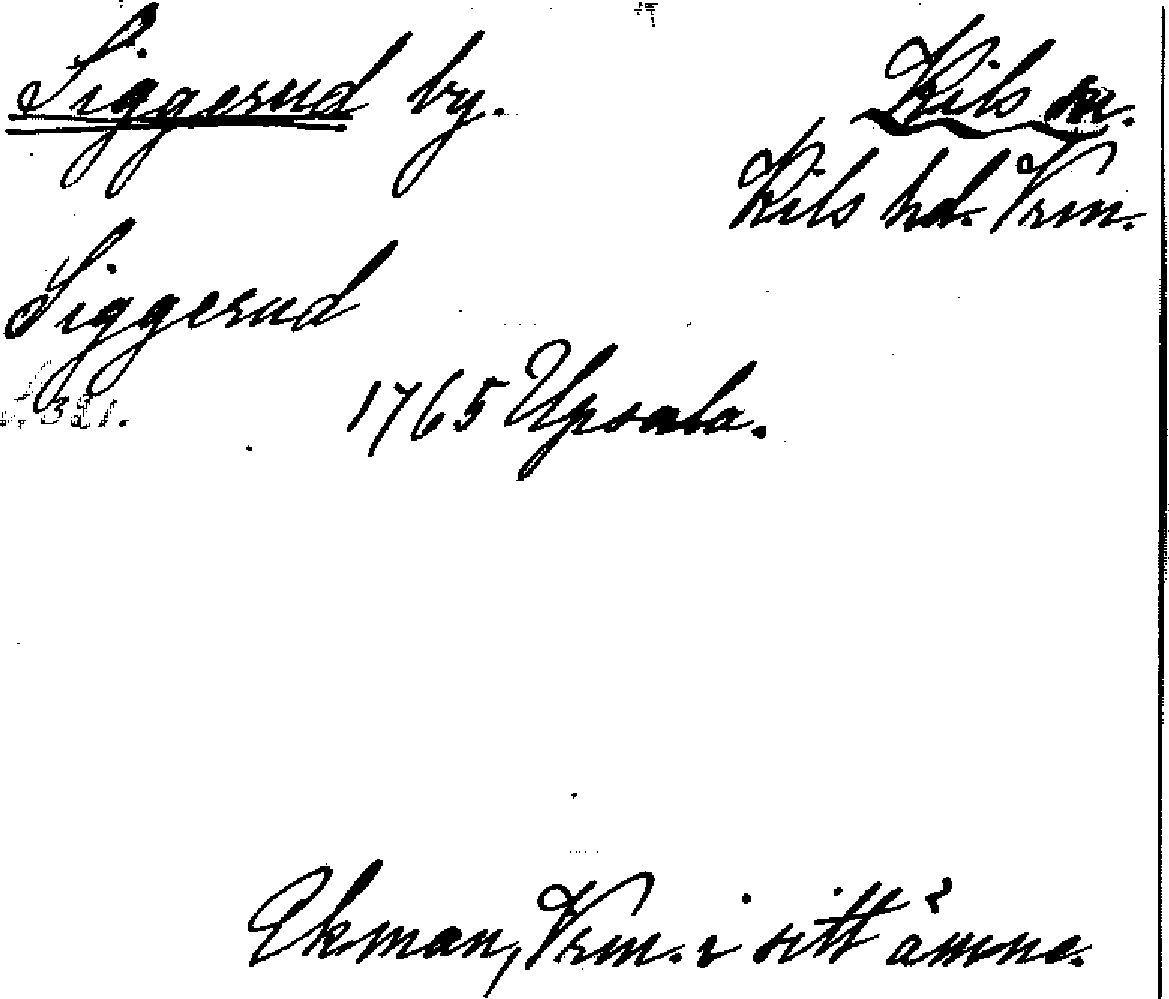 Siggerud by.
Kils sn.
Kils hd. Vrm.
Siggerud
1765 Upsala.
Ekman, Vrm. i sitt ämne.